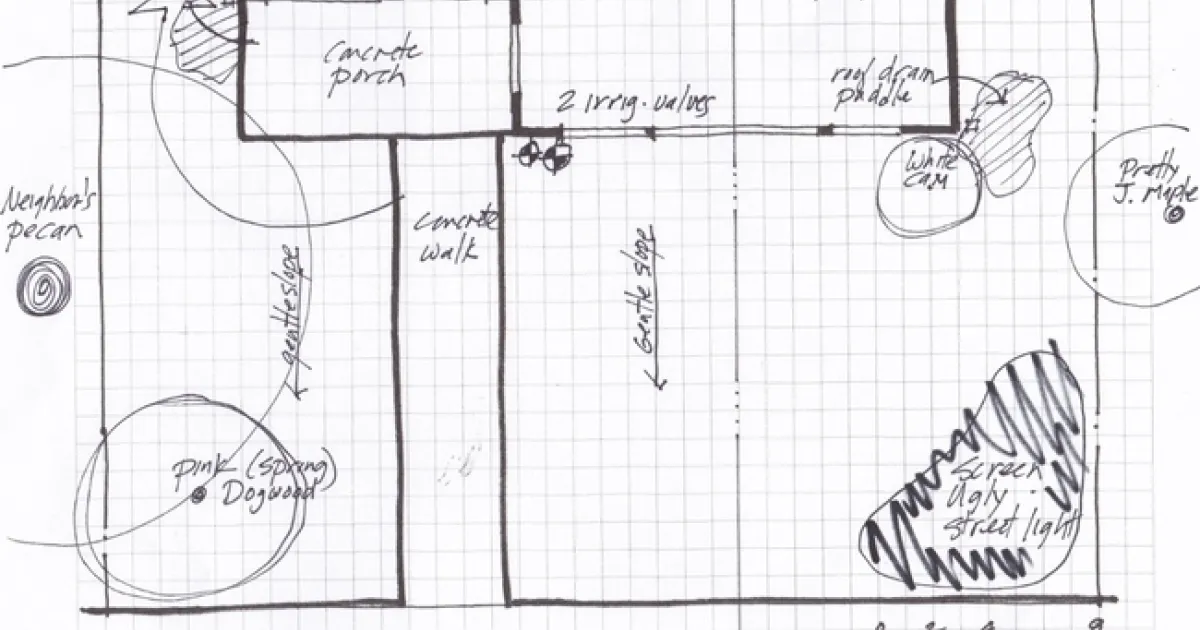 Concrete
porch
roof drain
puddle
2 irrig. valves
White
cam
Pretty
J. maple
Neighbor's
pecan
Concrete
walk
gentle slope
Gentle slope
pink (spring)
Dogwood
Screen
Ugly
street light